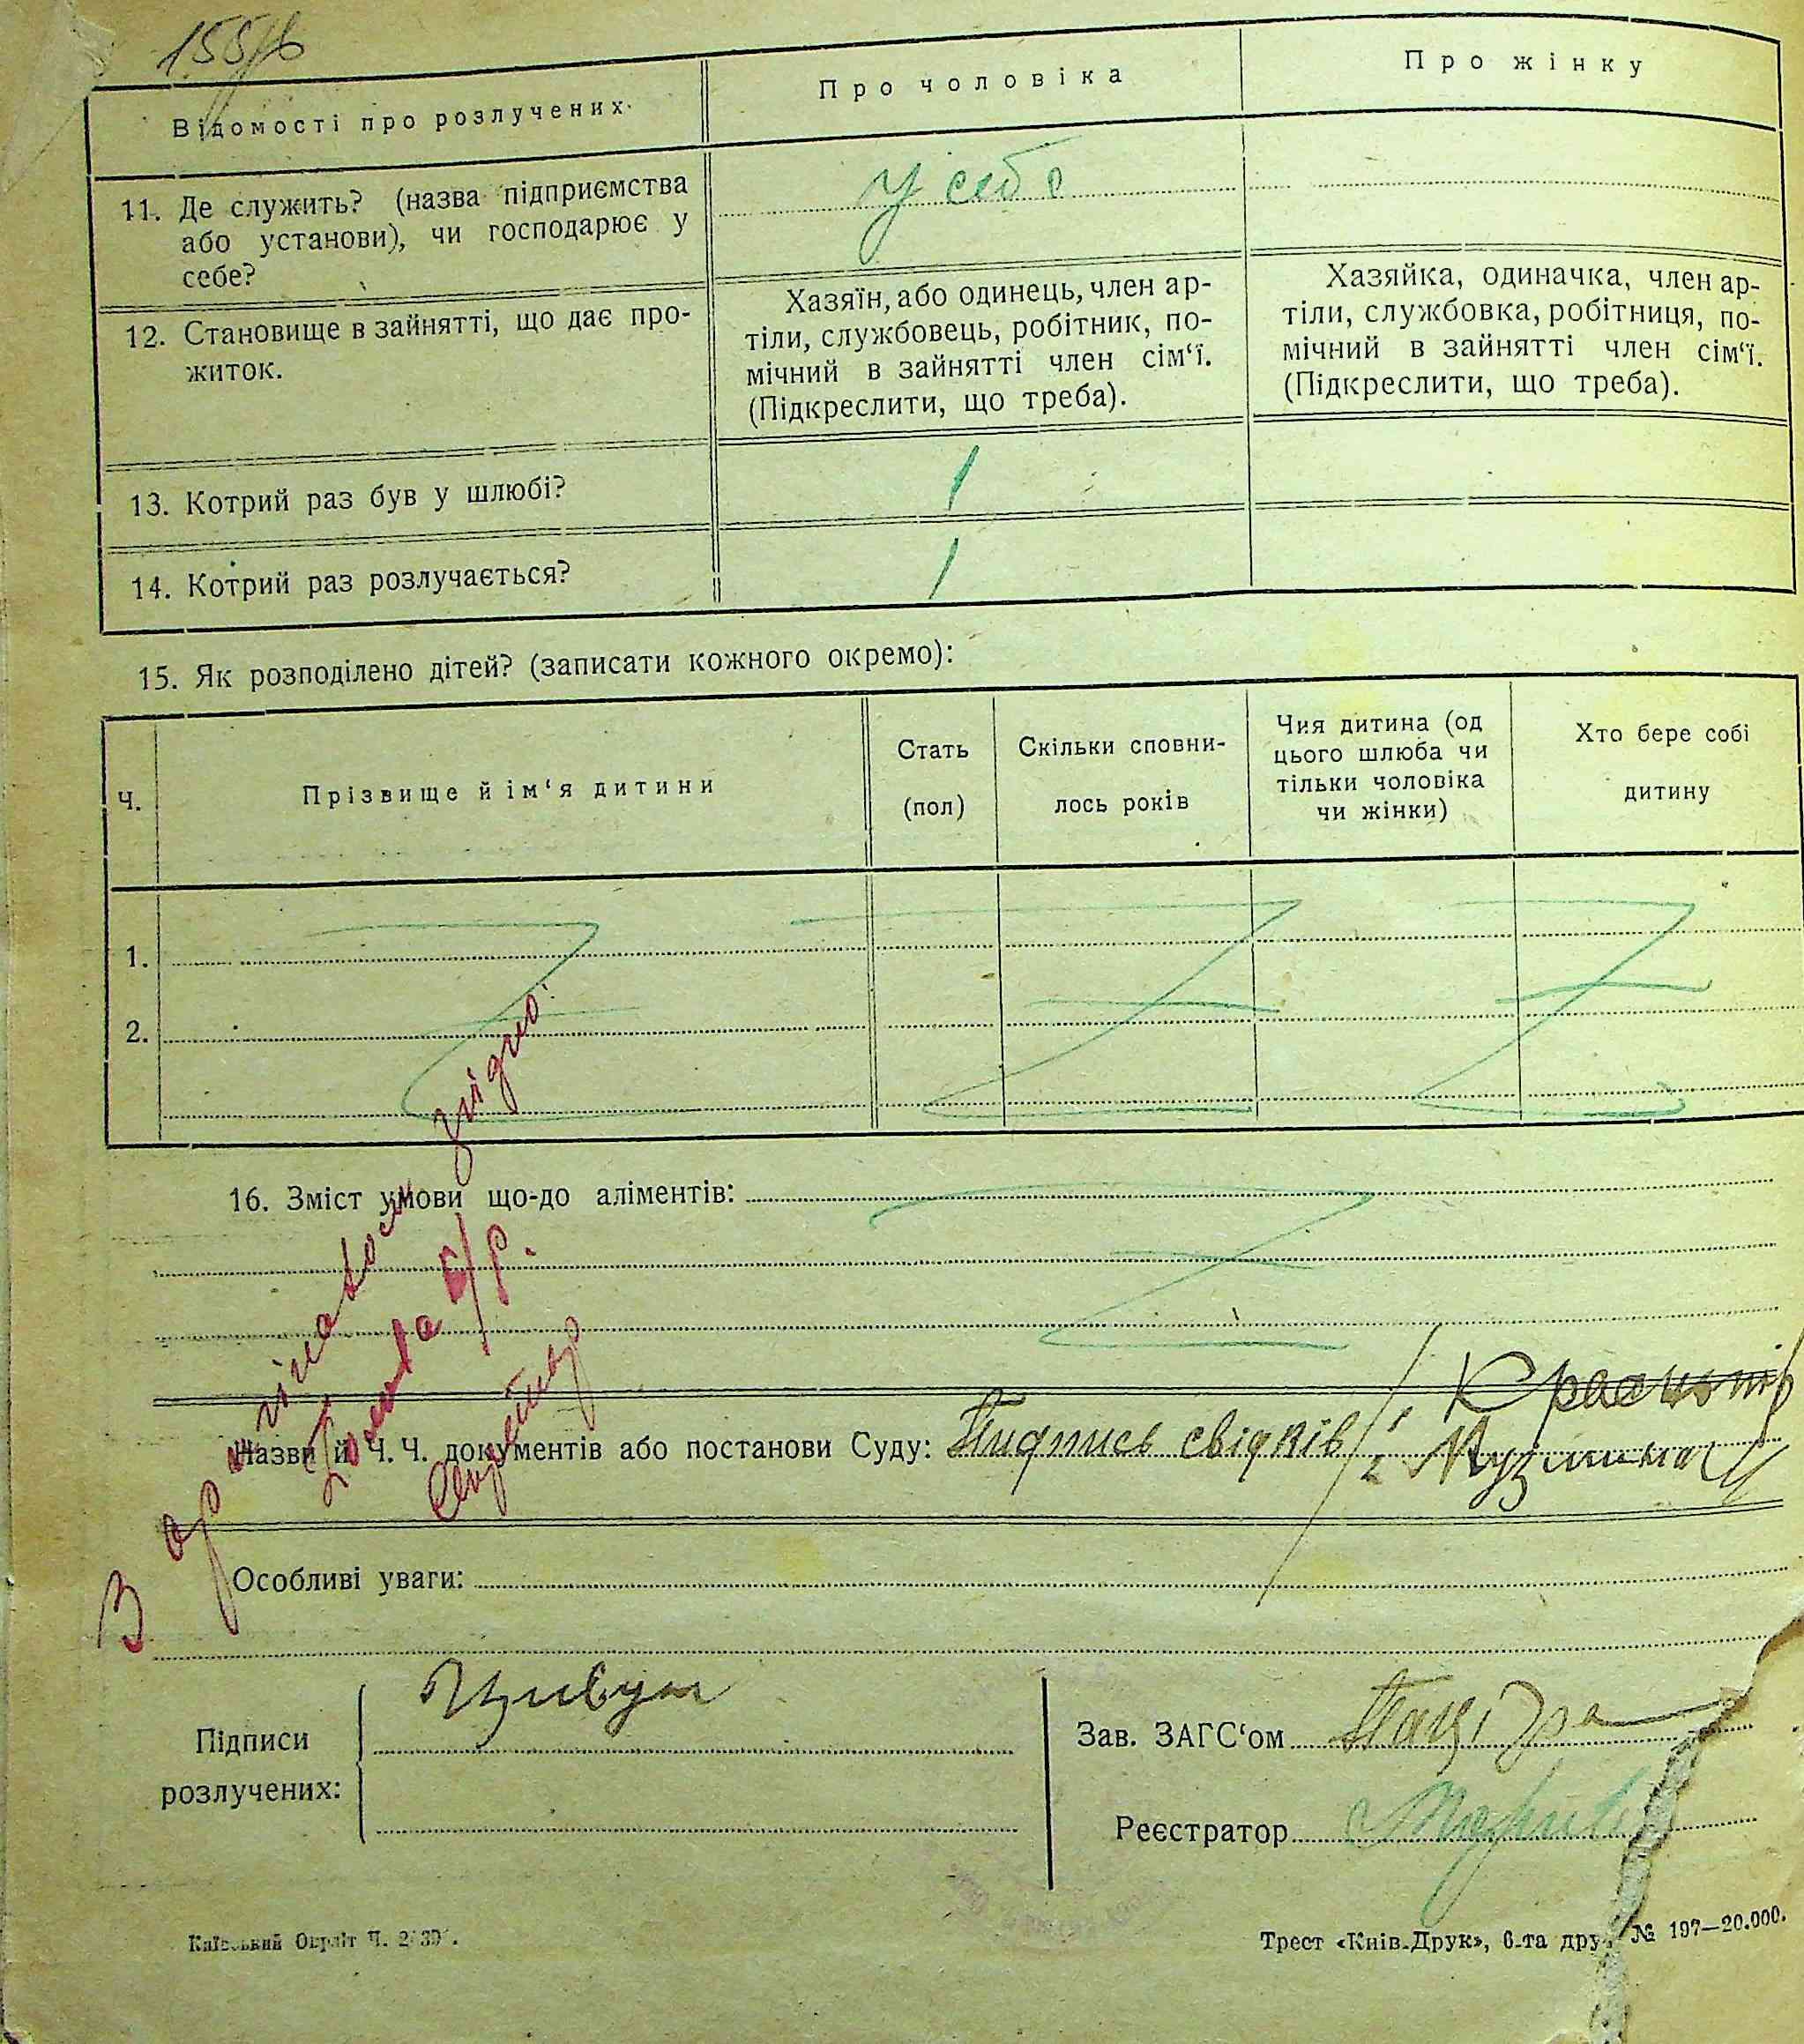 155/в
Відомості про розлучених
Про чоловіка
Про жінку
11. Де служить? (назва підприємства
або установи), чи господарює у
себе?
у себе
12. Становище в зайнятті, що дає про-
житок.
Хазяїн, або одинець, член ар-
тіли, службовець, робітник, по-
мічний в зайнятті член сім‘ї.
(Підкреслити, що треба).
Хазяйка, одиначка, член ар-
тіли, службовка, робітниця, по-
мічний в зайнятті член сім‘ї.
(Підкреслити, що треба).
13. Котрий раз був у шлюбі?
1
14. Котрий раз розлучається?
1
15. Як розподілено дітей? (записати кожного окремо):
Ч.
Прізвище й ім‘я дитини
Стать
(пол)
Скільки сповни-
лось років
Чия дитина (од
цього шлюба чи
тільки чоловіка
чи жінки)
Хто бере собі
дитину
1.
2.
16. Зміст умови що-до аліментів:
З оригіналом згідно:
с/р.
Секретар
Назви й Ч. Ч. документів або постанови Суду: Підпись свідків
Особливі уваги:
Підписи
розлучених:
Зав. ЗАГС‘ом
Реєстратор
Київський Окрліт Ч.
Трест «Київ-Друк», 6-та дру. № 197—20.000.